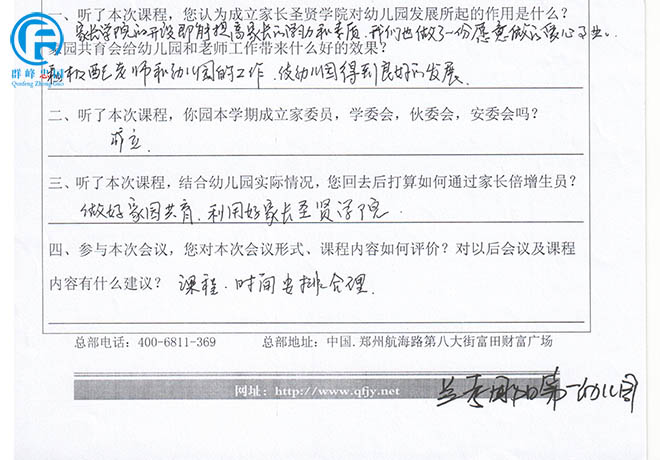 一、听了本次课程，您认为成立家长圣贤学院对幼儿园发展所起的作用是什么？
家长学院的开设即能提高家长的能力和素质，我们也做了一份愿意做的爱心事业。
家园共育会给幼儿园和老师工作带来什么好的效果？
积极配老师和幼儿园的工作，使幼儿园得到良好的发展。
群峰中国
Qunfeng Zhong Guo
二、听了本次课程，你园本学期成立家委员，学委会，伙委会，安委会吗？
成立
三、听了本次课程，结合幼儿园实际情况，您回去后打算如何通过家长倍增生员？
做好家园共育，利用好家长圣贤学院
四、参与本次会议，您对本次会议形式、课程内容如何评价？对以后会议及课程
内容有什么建议？ 课程、时间安排合理.
总部电话：400-6811-369 总部地址：中国.郑州航海路第八大街富田财富广场
网址：http://www.qfjy.net
兰考 第一幼儿园